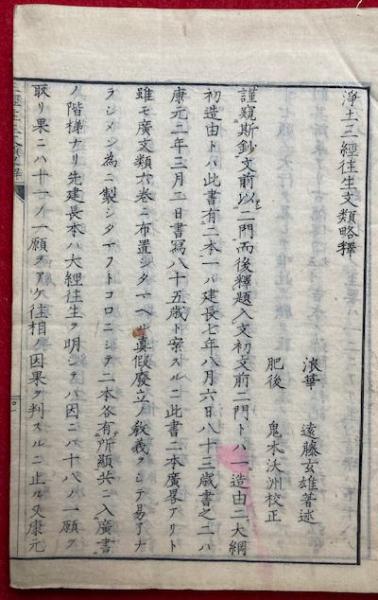 浄土三經往生文類略釋
浪華 遠藤玄雄著述
肥後 鬼木沃洲校正
謹窺斯鈔文前以二門而後釋題入文初文前二門トハ一造由二大綱
初造由トハ此書有二本一ハ建長七年八月六日八十三歳書之二ハ
康元二年三月二日書寫八十五歳ト案スルニ此書二本廣畧アリト
雖モ廣文類六卷ニ布置シタマヘル眞假廢立ノ敎義ヲシテ易了ナ
ラシメン為ニ製シタマフトコロニシテ二本各有所顯共ニ入廣書
ノ階梯ナリ先建長本ハ大經往生ヲ明シテハ因ニハ十八ノ一願ヲ
取リ果ニハ十一ノ一願ヲアケ往相ノ因果ヲ判スルニ止ル又康元